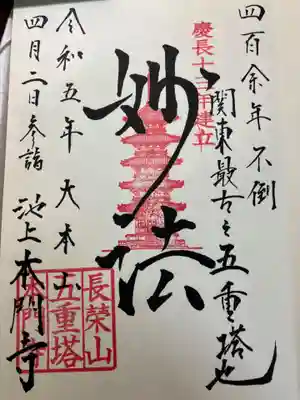 四百余年不倒
関東最古之五重塔也
慶長十三年建立
妙法
長榮山
五重塔
本門寺
令和五年大本山
四月二日参詣 池上本門寺